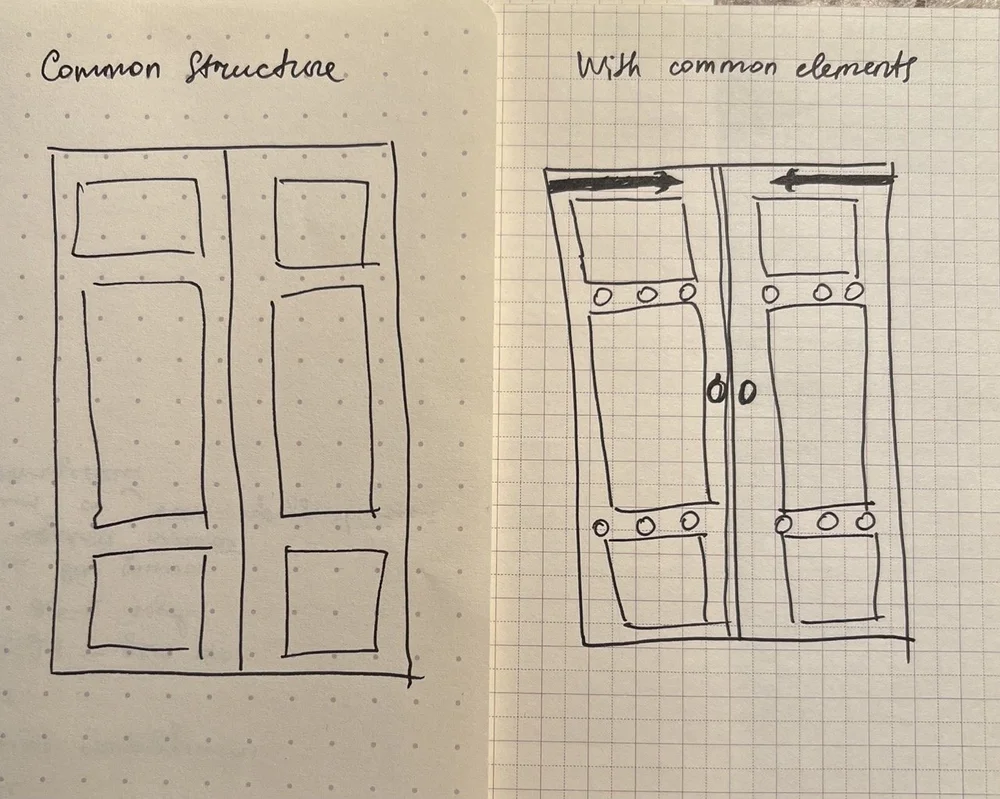 Common Structure
With common elements